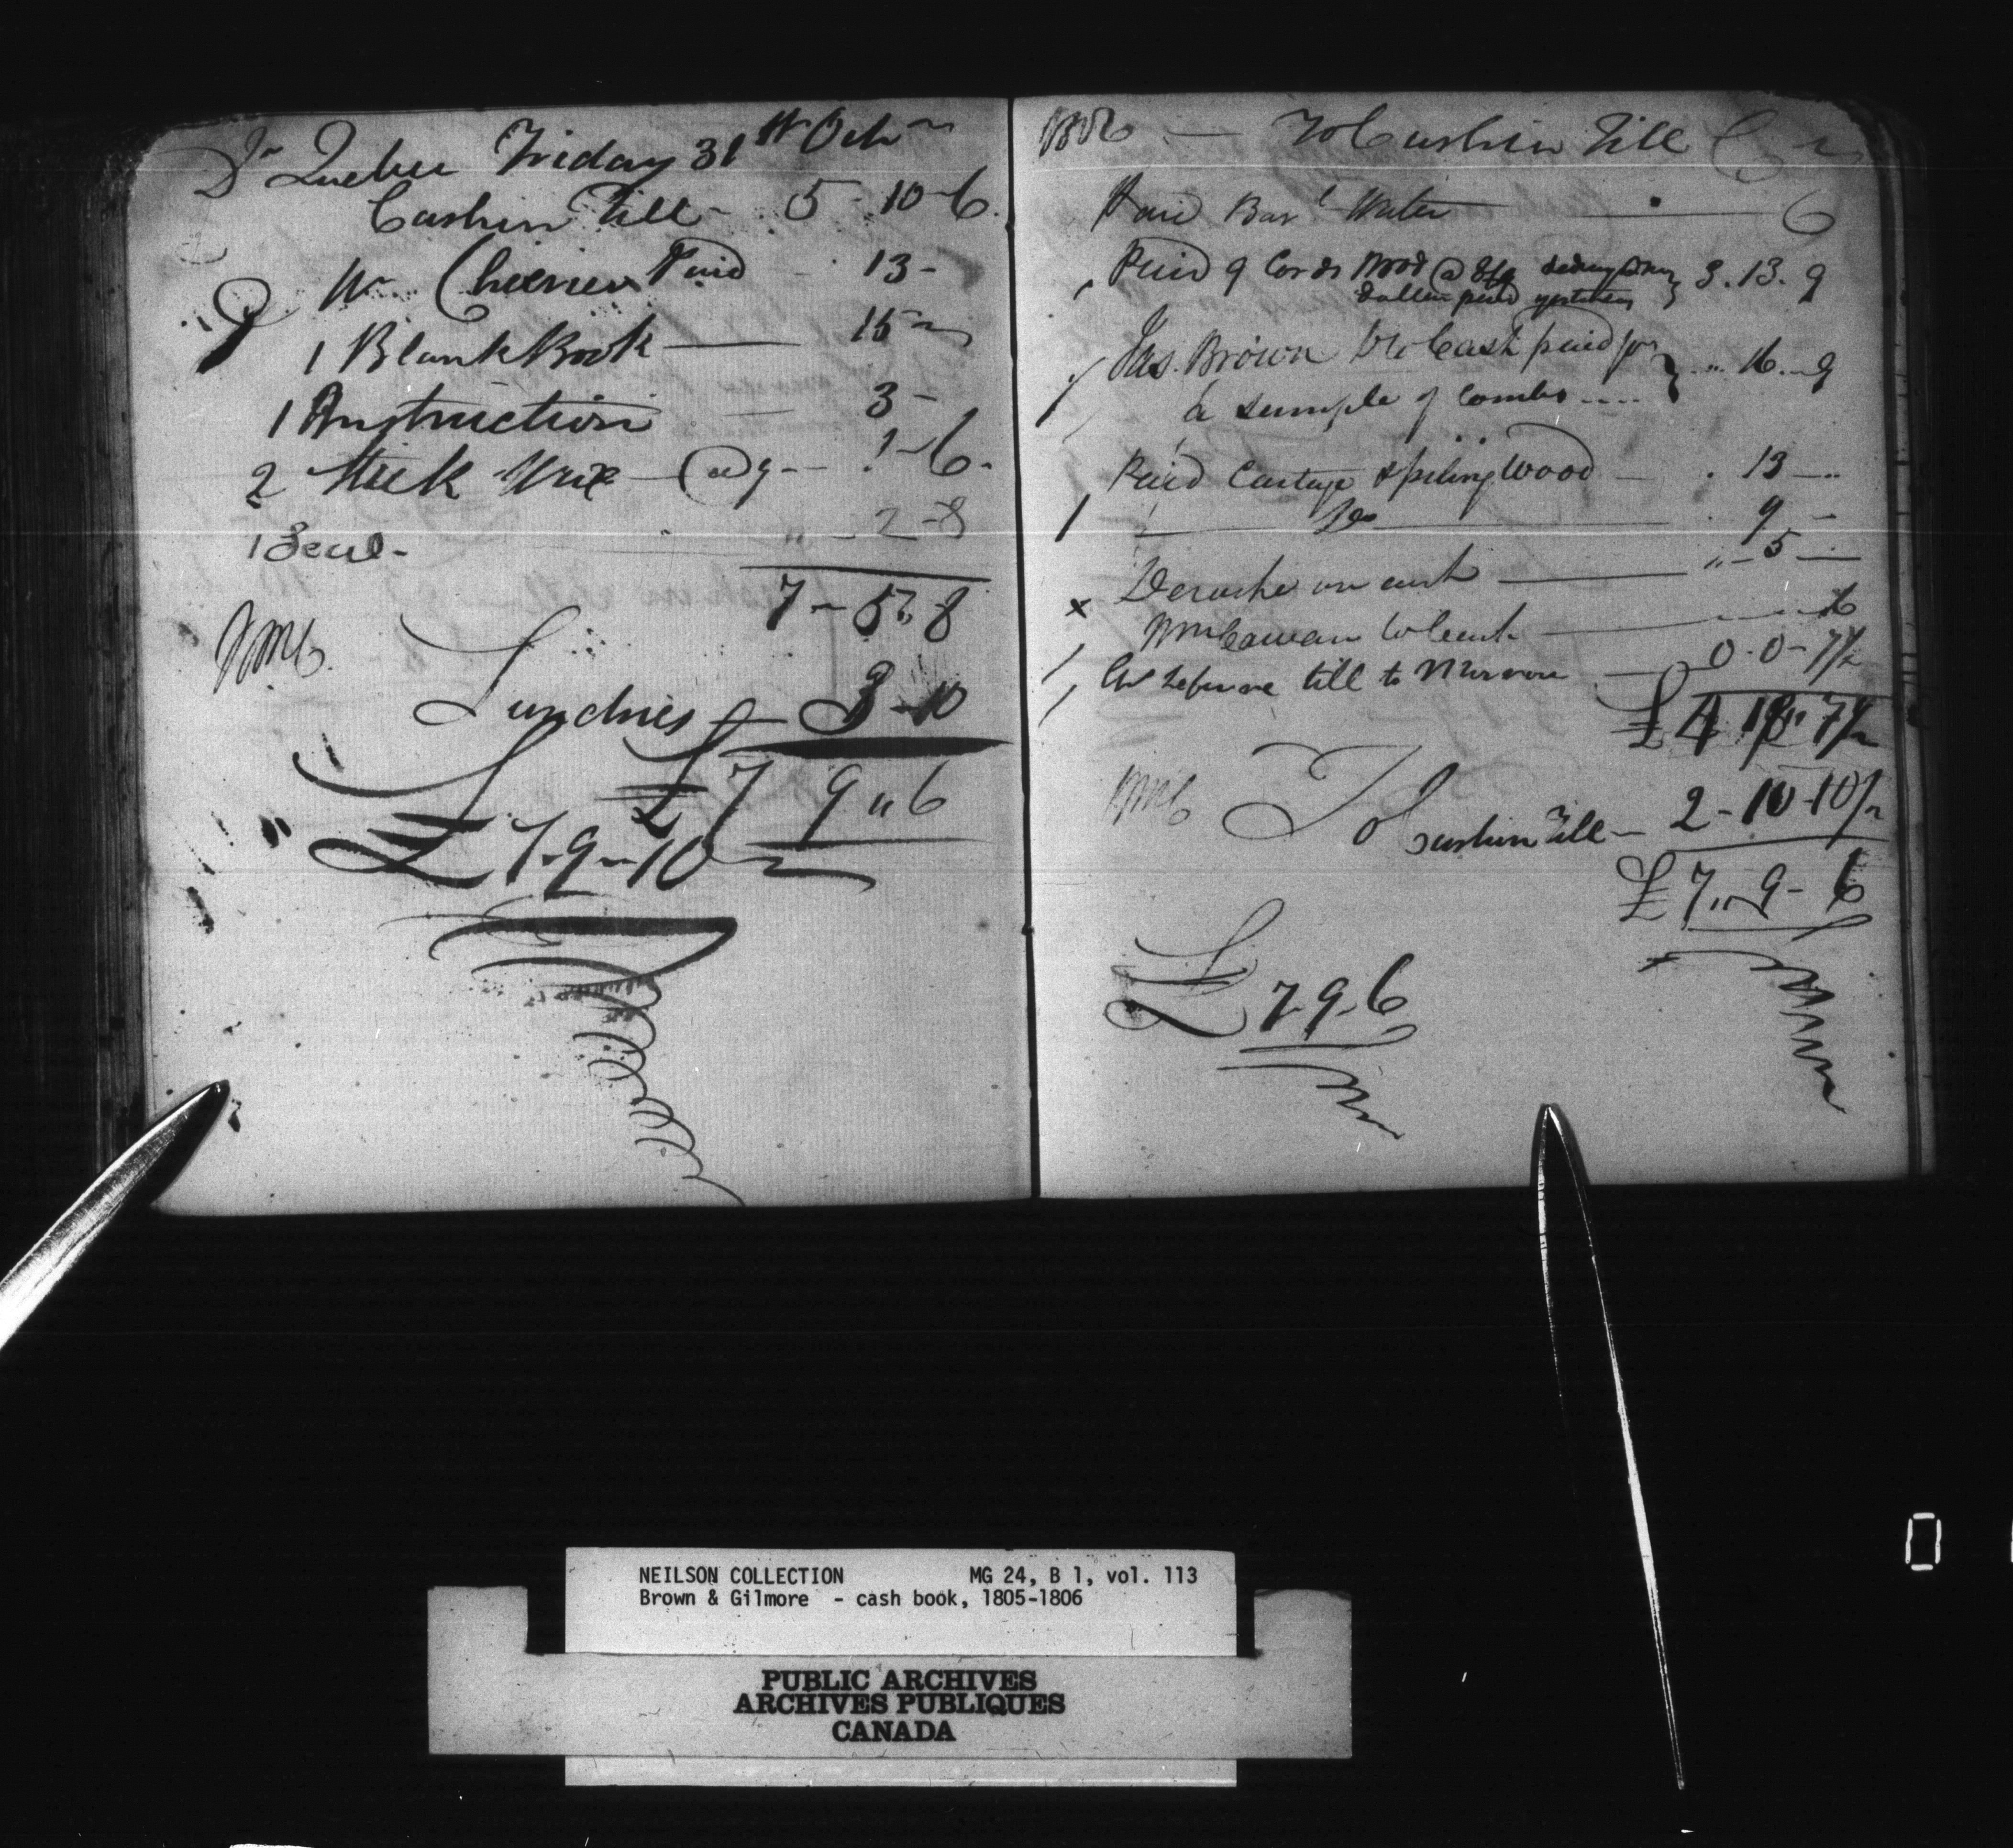 Dr Quebec Friday 31st Octr
Cash in Till - 5 - 10 - 6
Paid 13 -
1 Blank Book 15
1 Instruction 3 -
2 Stick Wax @ 9 - 1 - 6
1 Seal - 2 - 8
7 - 5 " 8
Sundries 3 - 10
£ 7 9 " 6
£ 7 - 9 - 10
To Cash in Till Cr
Paid Barl Water 6
Paid 9 Cords Wood @
Dollar paid yesterday 3 . 13 . 9
Jas. Brown Dr to Cash paid for
a sample of Combs .... " 16 - 9
Paid Cartage & piling Wood 13
Do 9 -
Deroche on acct " - 5 -
Wm Cowan to Cash
till to Mirrore 0 - 0 - 7½
£ 4 18 " 7½
To Cash in Till - 2 - 10 - 10½
£ 7 " 9 - 6
£ 7 - 9 - 6
NEILSON COLLECTION MG 24, B 1, vol. 113
Brown & Gilmore - cash book, 1805-1806
PUBLIC ARCHIVES
ARCHIVES PUBLIQUES
CANADA